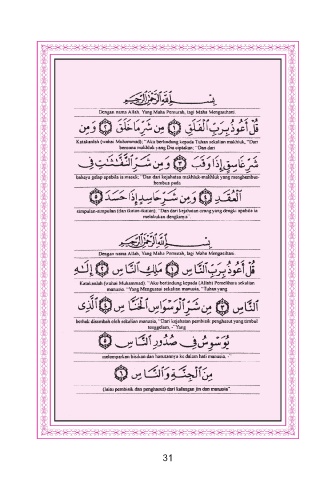 بِسْمِ اللَّهِ الرَّحْمَٰنِ الرَّحِيمِ
Dengan nama Allah, Yang Maha Pemurah, lagi Maha Mengasihani.
قُلْ أَعُوذُ بِرَبِّ الْفَلَقِ ١ مِن شَرِّ مَا خَلَقَ ٢ وَمِن
Katakanlah (wahai Muhammad); "Aku berlindung kepada Tuhan sekalian makhluk, "Dari
bencana makhluk yang Dia ciptakan; "Dan dari
شَرِّ غَاسِقٍ إِذَا وَقَبَ ٣ وَمِن شَرِّ النَّفَّاثَاتِ فِي
bahaya gelap apabila ia masuk; "Dan dari kejahatan makhluk-makhluk yang menghembus-
hembus pada
الْعُقَدِ ٤ وَمِن شَرِّ حَاسِدٍ إِذَا حَسَدَ ٥
simpulan-simpulan (dan ikatan-ikatan); "Dan dari kejahatan orang yang dengki apabila ia
melakukan dengkinya".
بِسْمِ اللَّهِ الرَّحْمَٰنِ الرَّحِيمِ
Dengan nama Allah, Yang Maha Pemurah, lagi Maha Mengasihani.
قُلْ أَعُوذُ بِرَبِّ النَّاسِ ١ مَلِكِ النَّاسِ ٢ إِلَٰهِ
Katakanlah (wahai Muhammad): "Aku berlindung kepada (Allah) Pemelihara sekalian
manusia. "Yang Menguasai sekalian manusia, "Tuhan yang
النَّاسِ ٣ مِن شَرِّ الْوَسْوَاسِ الْخَنَّاسِ ٤ الَّذِي
berhak disembah oleh sekalian manusia, "Dari kejahatan pembisik penghasut yang timbul
tenggelam, - "Yang
يُوَسْوِسُ فِي صُدُورِ النَّاسِ ٥
melemparkan bisikan dan hasutannya ke dalam hati manusia, -
مِنَ الْجِنَّةِ وَالنَّاسِ ٦
(Iaitu pembisik dan penghasut) dari kalangan jin dan manusia".
31